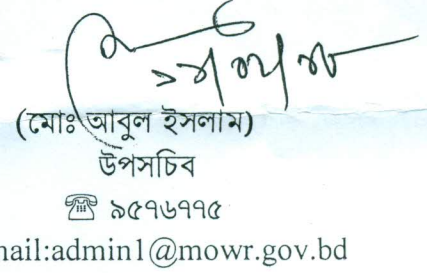 (মোঃ আবুল ইসলাম)
উপসচিব
☎ ৯৫৭৬৭৭৫
mail:admin1@mowr.gov.bd